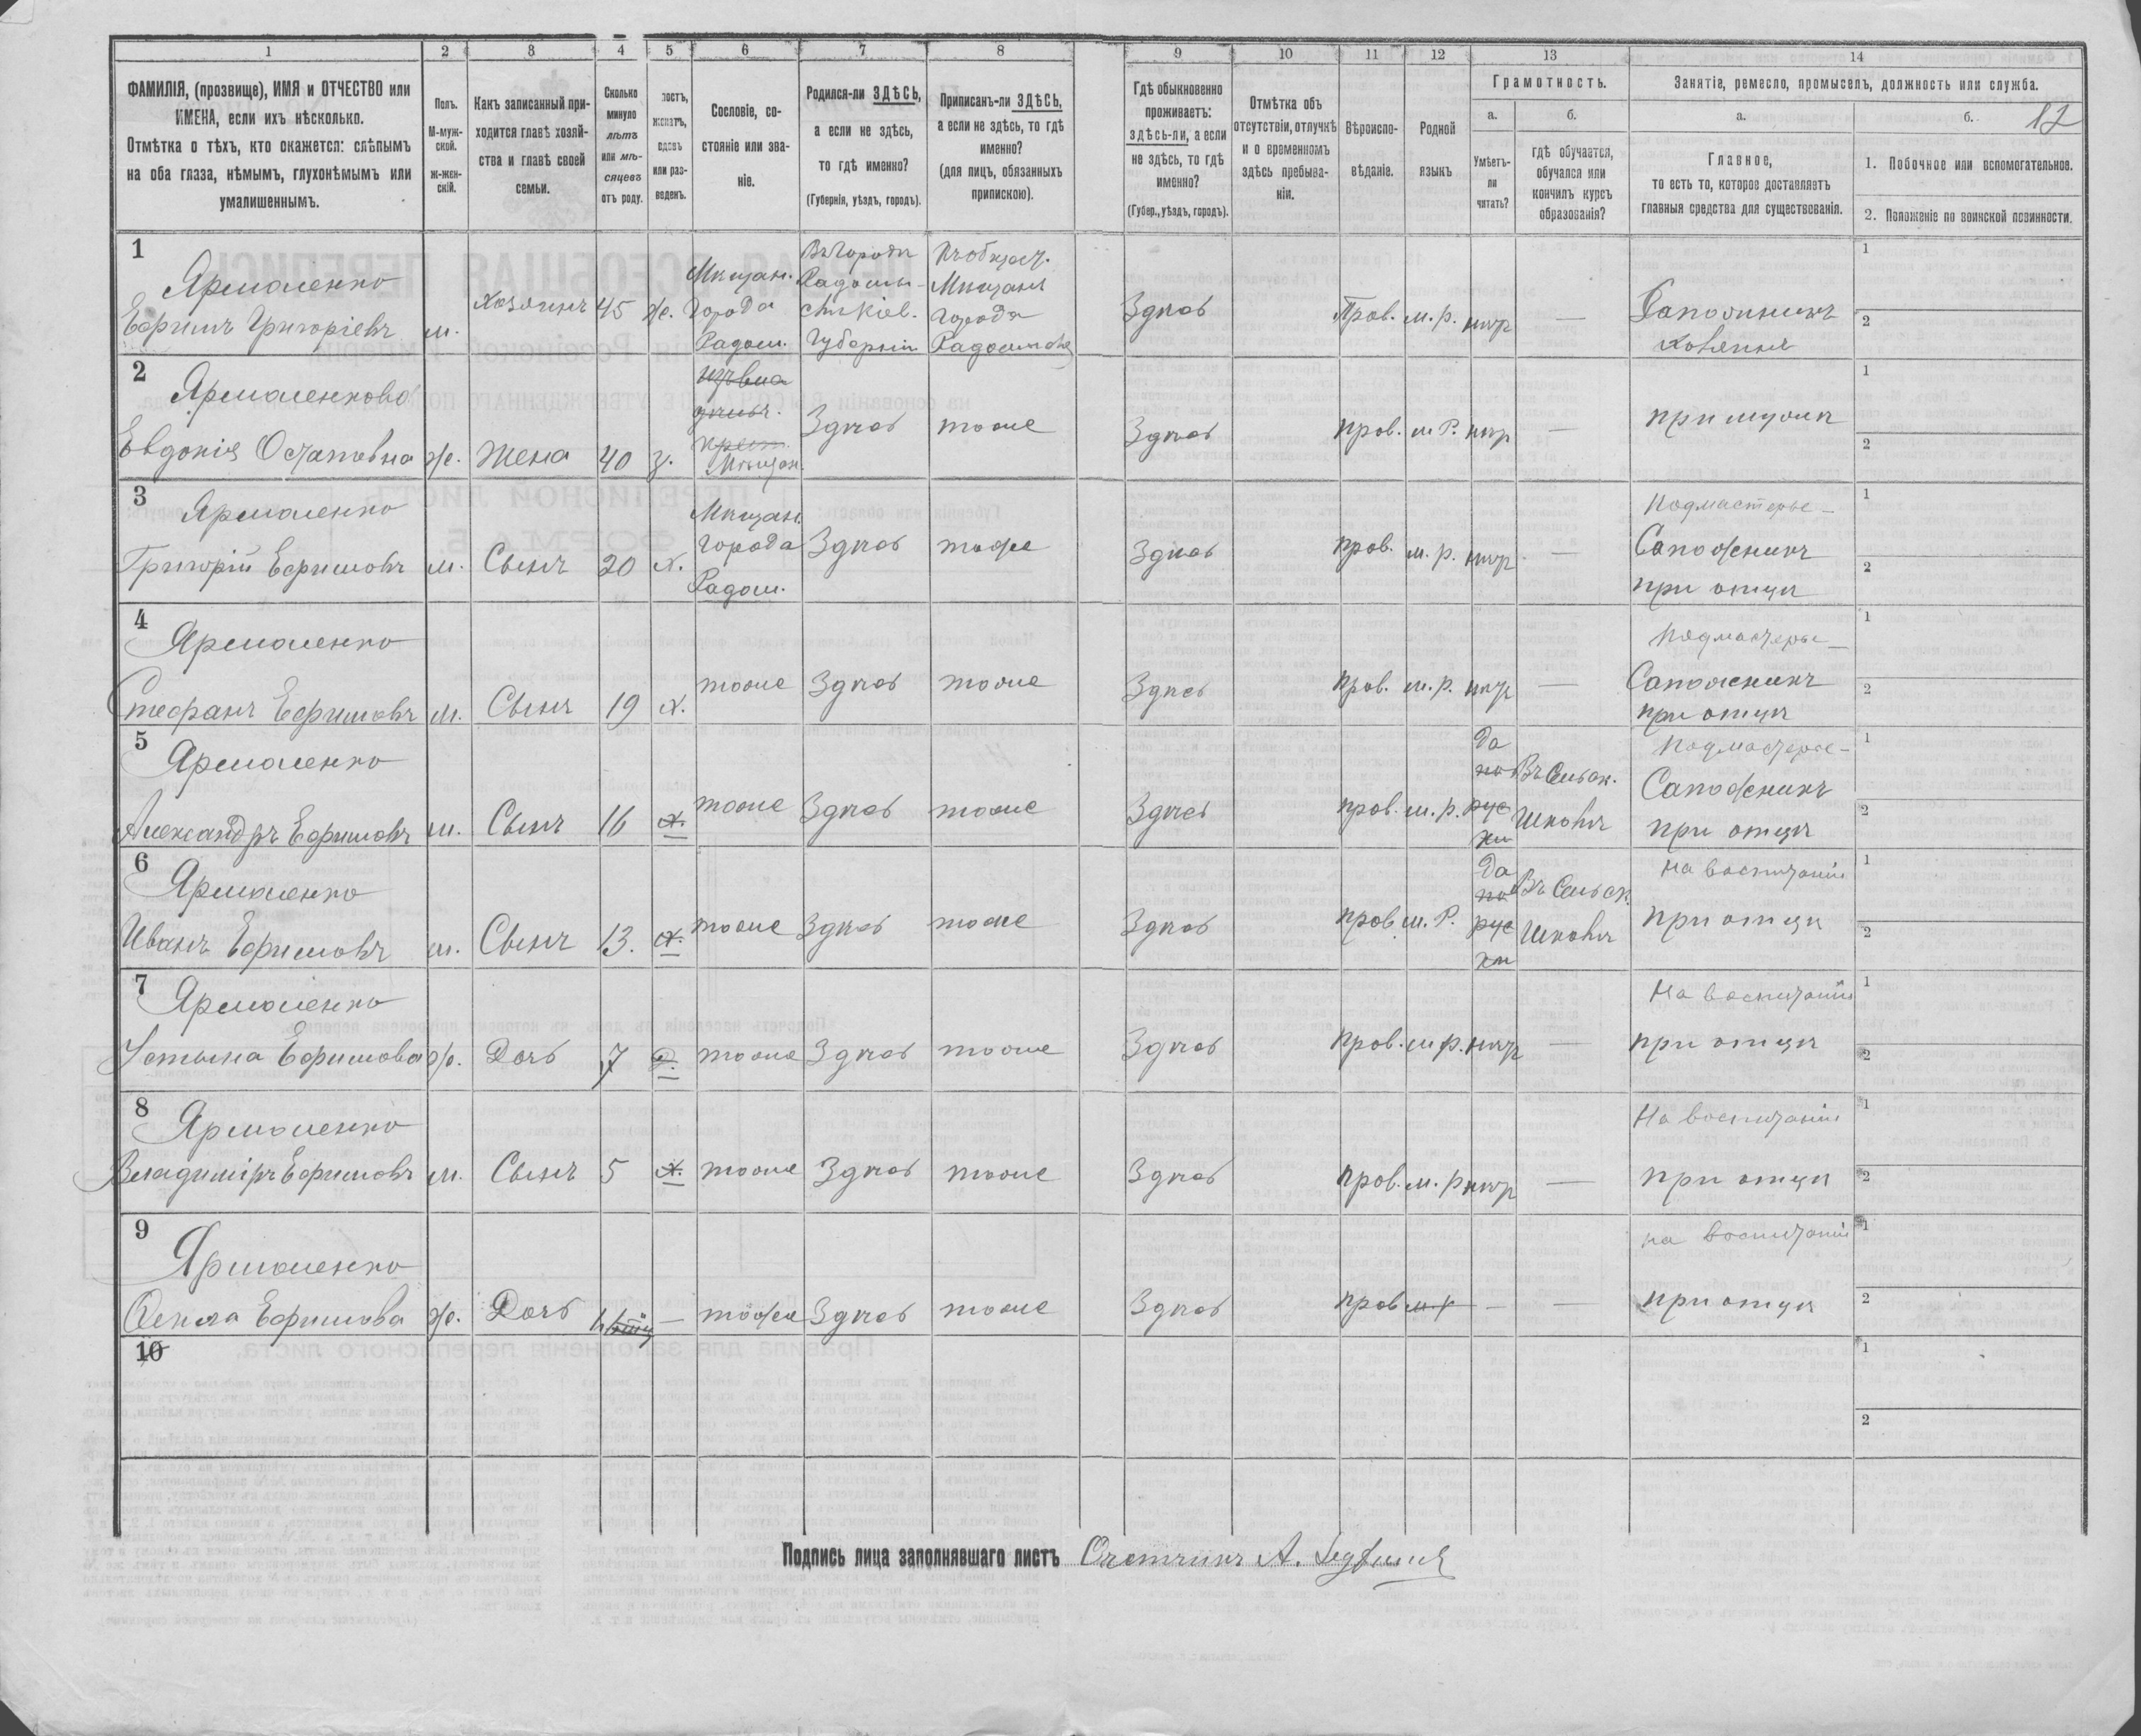 1 2 3 4 5 6 7 8 9 10 11 12 13 14
ФАМИЛІЯ, (прозвище), ИМЯ и ОТЧЕСТВО или
ИМЕНА, если ихъ нѣсколько.
Отмѣтка о тѣхъ, кто окажется: слѣпымъ
на оба глаза, нѣмымъ, глухонѣмымъ или
умалишеннымъ.
Полъ.
М-муж-
ской.
ж-жен-
скій.
Какъ записанный при-
ходится главѣ хозяй-
ства и главѣ своей
семьи.
Сколько
минуло
лѣтъ
или мѣ-
сяцевъ
отъ роду.
лостъ,
женатъ,
вдовъ
или раз-
веденъ.
Сословіе, со-
стояніе или зва-
ніе.
Родился-ли ЗДѢСЬ,
а если не здѣсь,
то гдѣ именно?
(Губернія, уѣздъ, городъ).
Приписанъ-ли ЗДѢСЬ,
а если не здѣсь, то гдѣ
именно?
(для лицъ, обязанныхъ
припискою).
Гдѣ обыкновенно
проживаетъ:
здѣсь-ли, а если
не здѣсь, то гдѣ
именно?
(Губер., уѣздъ, городъ).
Отмѣтка объ
отсутствіи, отлучкѣ
и о временномъ
здѣсь пребыва-
ніи.
Вѣроиспо-
вѣданіе.
Родной
языкъ
Грамотность.
а.
Умѣетъ-
ли
читать?
б.
гдѣ обучается,
обучался или
кончилъ курсъ
образованія?
Занятіе, ремесло, промыселъ, должность или служба.
а.
Главное,
то есть то, которое доставляетъ
главныя средства для существованія.
б.
12
1. Побочное или вспомогательное.
2. Положеніе по воинской повинности.
1
Ярмоленко
Ефимъ Григоріевъ м. Хозяинъ 45 ж.
Мѣщан.
Города
Радом.
Въ Городѣ
Радомы-
слѣ Кіев.
Губерніи
Къ общест.
Мѣщанъ
города
Радомысля
Здѣсь Прав. м. р. нѣтъ —
Сапожникъ
Хозяинъ
1
2
2
Ярмоленкова
Евдокія Остаповна ж. Жена 40 з.
Мѣщан.
Здѣсь тоже Здѣсь прав. м. Р. нѣтъ —
при мужѣ
1
2
3
Ярмоленко
Григорій Ефимовъ м. Сынъ 20 х.
Мѣщан.
города
Радом.
Здѣсь тоже Здѣсь прав. м. р. нѣтъ —
Подмастерье —
Сапожникъ
при отцѣ
1
2
4
Ярмоленко
Стефанъ Ефимовъ м. Сынъ 19 х. тоже Здѣсь тоже Здѣсь прав. м. р. нѣтъ —
Подмастерье —
Сапожникъ
при отцѣ
1
2
5
Ярмоленко
Александръ Ефимовъ м. Сынъ 16 х. тоже Здѣсь тоже Здѣсь прав. м. р.
Да
по
рус
ки
Въ Сельск.
Школѣ
Подмастерье —
Сапожникъ
при отцѣ
1
2
6
Ярмоленко
Иванъ Ефимовъ м. Сынъ 13. х. тоже Здѣсь тоже Здѣсь прав. м. Р.
Да
по
рус
ки
Въ Сельск.
Школѣ
На воспитаніи
при отцѣ
1
2
7
Ярмоленко
Устына Ефимова ж. Дочь 7 тоже Здѣсь тоже Здѣсь прав. м р. нѣтъ —
На воспитаніи
при отцѣ
1
2
8
Ярмоленко
Владиміръ Ефимовъ м. Сынъ 5 х. тоже Здѣсь тоже Здѣсь прав. м. р нѣтъ —
На воспитаніи
при отцѣ
1
2
9
Ярмоленко
Ефимова ж. Дочь — тоже Здѣсь тоже Здѣсь прав м р — —
на воспитаніи
при отцѣ
1
2
10
1
2
Подпись лица заполнявшаго листъ Счетчикъ А.